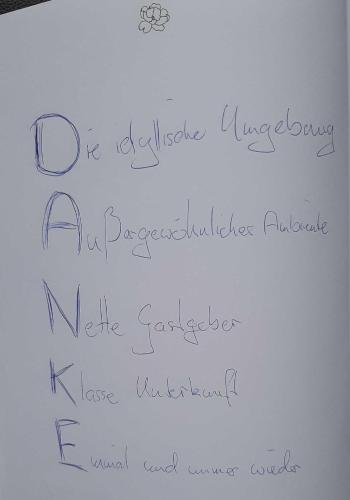 Die idyllische Umgebung
Außergewöhnliches Ambiente
Nette Gastgeber
Klasse Unterkunft
Einmal und immer wieder